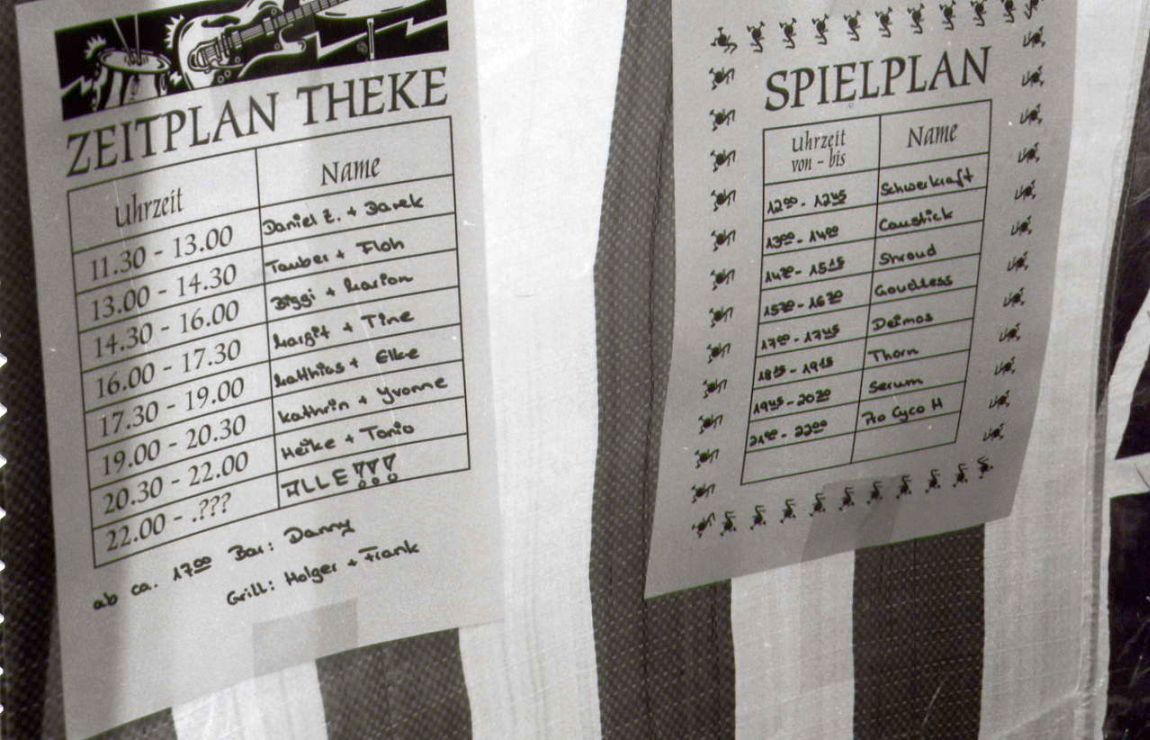 ZEITPLAN THEKE
Uhrzeit Name
11.30 - 13.00 Daniel Z. + Darek
13.00 - 14.30 Tauber + Floh
14.30 - 16.00 Biggi + Marion
16.00 - 17.30 Margit + Tine
17.30 - 19.00 Matthias + Elke
19.00 - 20.30 Kathrin + Yvonne
20.30 - 22.00 Heike + Tonio
22.00 - .??? ALLE!!!
ab ca. 17⁰⁰ Bar: Danny
Grill: Holger + Frank
SPIELPLAN
Uhrzeit Name
von - bis
12⁰⁰ - 12⁴⁵ Schwerkraft
13⁰⁰ - 14⁰⁰ Caustick
14³⁰ - 15¹⁵ Shroud
15³⁰ - 16³⁰ Goudless
17⁰⁰ - 17⁴⁵ Deimos
18¹⁵ - 19¹⁵ Thorn
19⁴⁵ - 20³⁰ Serum
21⁰⁰ - 22⁰⁰ Pro Cyco H